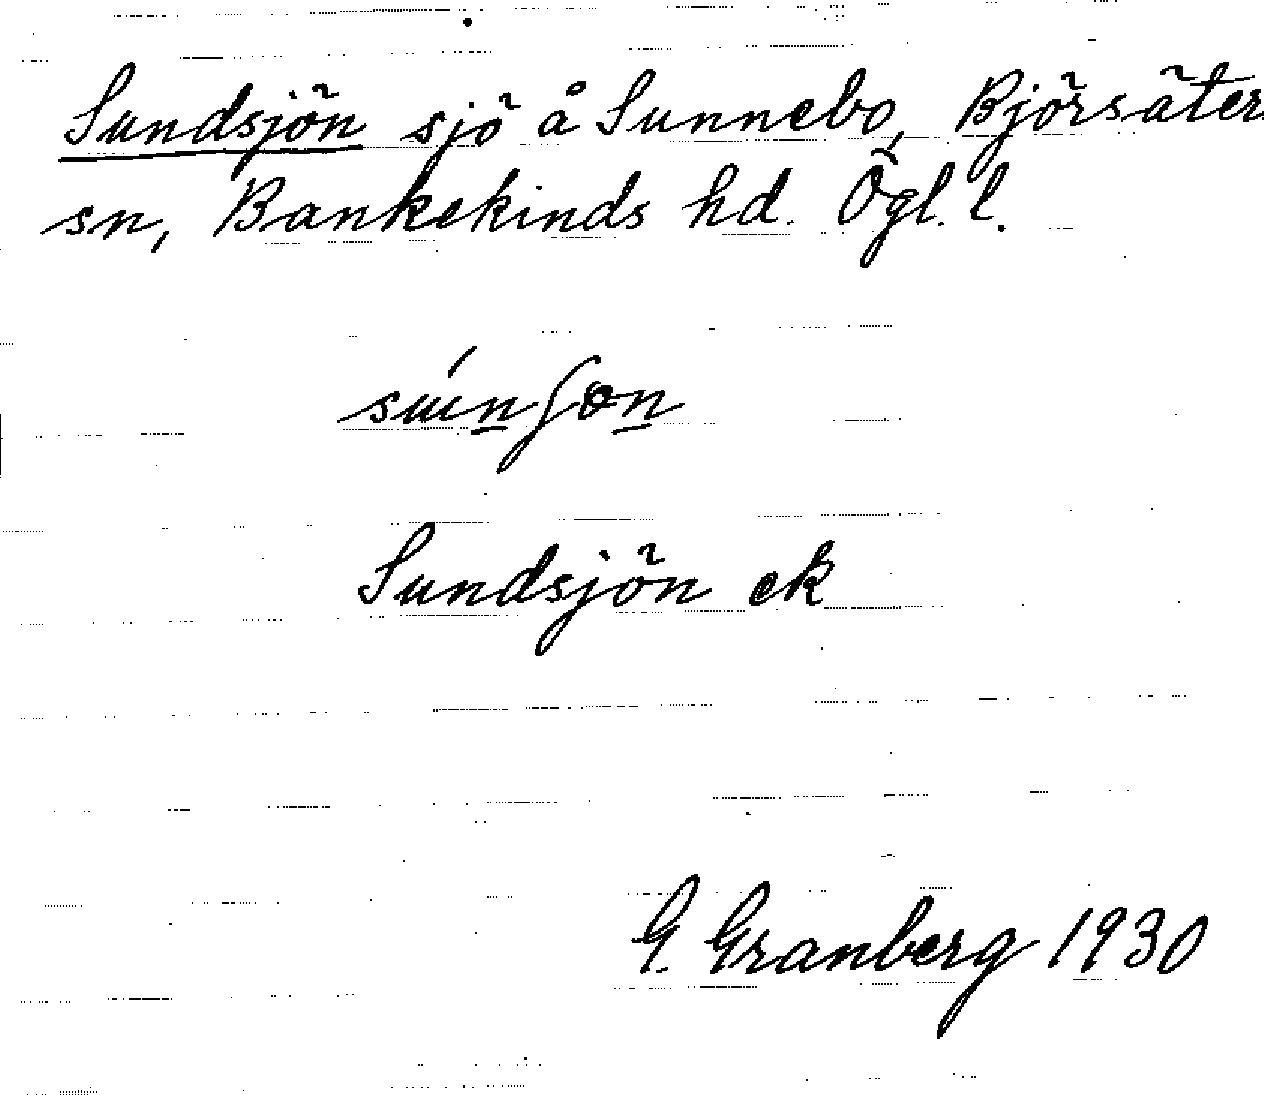 Sundsjön sjö å Sunnebo, Björsäters
sn, Bankekinds hd. Ögl. l.
Sundsjön ek
G. Granberg 1930